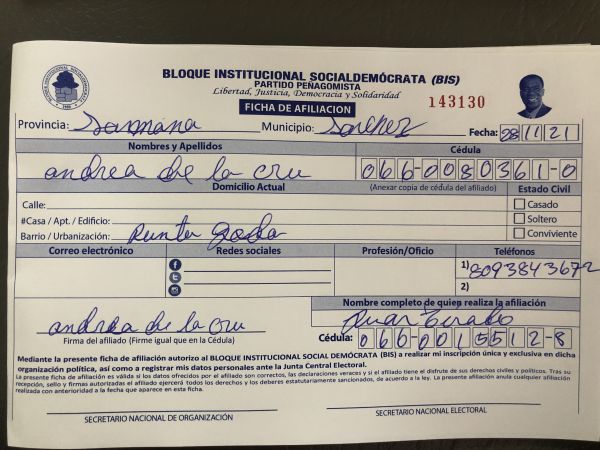 BLOQUE INSTITUCIONAL SOCIALDEMÓCRATA (BIS)
PARTIDO PEÑAGOMISTA
Libertad, Justicia, Democracia y Solidaridad
FICHA DE AFILIACION
143130
Provincia: Samana Municipio: Sanchez Fecha: 28 11 21
Nombres y Apellidos Cédula
andrea de la cru 066-0080361-0
Domicilio Actual (Anexar copia de cédula del afiliado) Estado Civil
Calle: Casado
#Casa / Apt. / Edificio: Soltero
Barrio / Urbanización: Punta Conviviente
Correo electrónico Redes sociales Profesión/Oficio Teléfonos
1) 8093843672
2)
Nombre completo de quien realiza la afiliación
andrea de la cru
Firma del afiliado (Firme igual que en la Cédula) Cédula: 066-0015512-8
Mediante la presente ficha de afiliación autorizo al BLOQUE INSTITUCIONAL SOCIAL DEMÓCRATA (BIS) a realizar mi inscripción única y exclusiva en dicha
organización política, así como a registrar mis datos personales ante la Junta Central Electoral.
La presente ficha de afiliación es válida si los datos ofrecidos por el afiliado son correctos, las declaraciones veraces y si el afiliado tiene el disfrute de sus derechos civiles y políticos. Tras su
recepción, sello y firmas autorizadas el afiliado ejercerá todos los derechos y los deberes estatutariamente sancionados, de acuerdo a la ley. La presente afiliación anula cualquier afiliación
realizada con anterioridad a la fecha que aparece en esta ficha.
SECRETARIO NACIONAL DE ORGANIZACIÓN SECRETARIO NACIONAL ELECTORAL